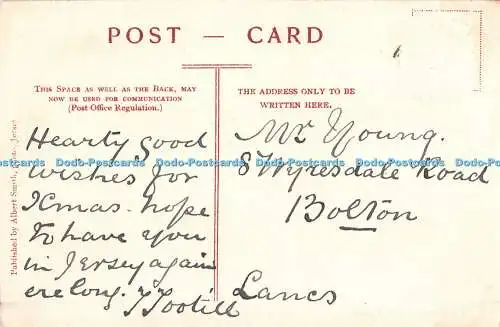 POST — CARD
THIS SPACE AS WELL AS THE BACK, MAY
NOW BE USED FOR COMMUNICATION
(Post Office Regulation.)
THE ADDRESS ONLY TO BE
WRITTEN HERE.
Hearty good
wishes for
Xmas. hope
to have you
in Jersey again
ere long. Tootill
Mr Young.
8 Wyresdale Road
Bolton
Lancs
Published by Albert Smith, Jersey
Dodo-Postcards Dodo-Postcards Dodo-Postcards Dodo-Postcards Dodo-Postcards
Dodo-Postcards Dodo-Postcards Dodo-Postcards Dodo-Postcards Dodo-Postcards